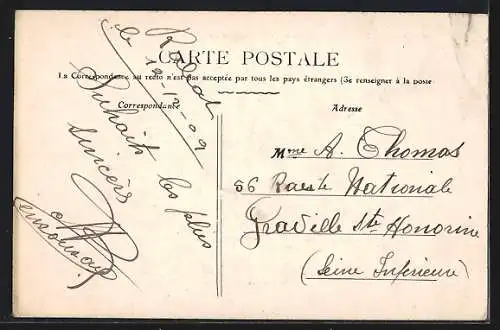 CARTE POSTALE
La Correspondance au recto n'est pas acceptée par tous les pays étrangers (Se renseigner à la poste
Correspondance
Adresse
le 12-12-09
Souhaits les plus
sincères
Mme A. Thomas
56 Route Nationale
Graville Ste Honorine
(Seine Inférieure)